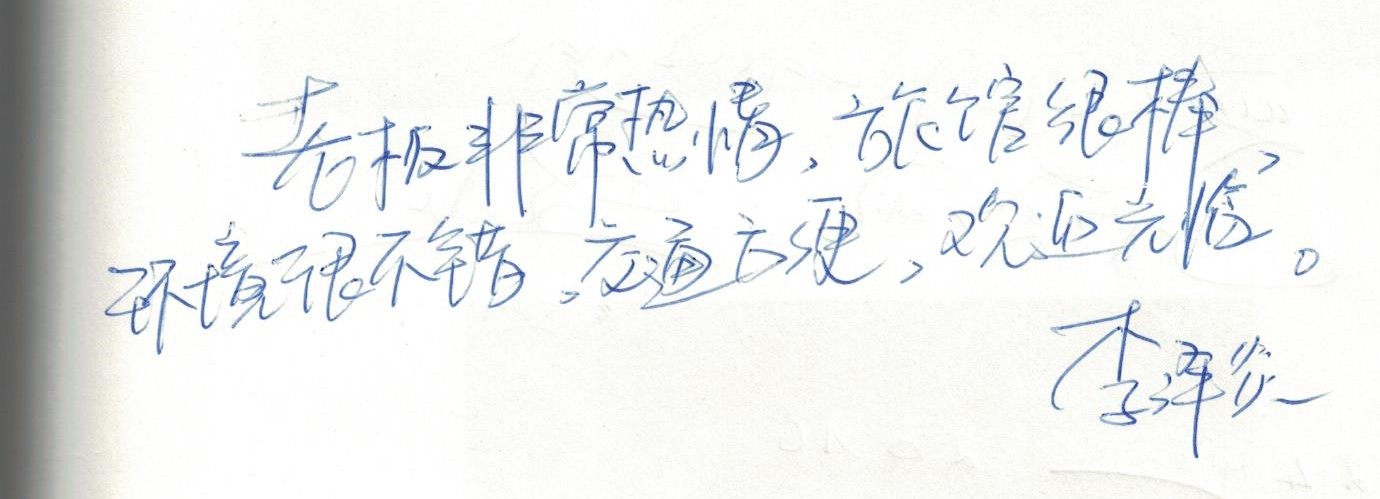 老板非常热情、旅馆很棒、
环境很不错、交通方便、欢迎光临。
李泽